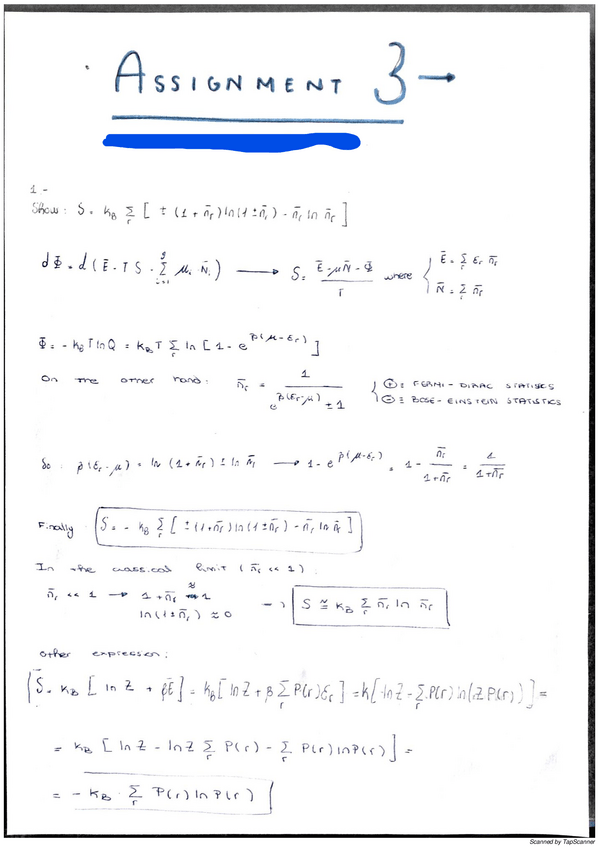 ASSIGNMENT 3 →
1 -
Show: S = k_B Σ_r [ ± (1 + n̄_r) ln(1 ± n̄_r) - n̄_r ln n̄_r ]
dΦ̄ = d ( Ē - T S - Σ_{i=1}^{g} μ_i N̄_i ) → S = (Ē - μN̄ - Φ̄) / T where { Ē = Σ_r ε_r n̄_r
N̄ = Σ_r n̄_r
Φ̄ = - k_B T ln Q = k_B T Σ_r ln [ 1 - e^{β(μ - ε_r)} ]
On the other hand: n̄_r = 1 / (e^{β(ε_r - μ)} ± 1) { ⊕ ≡ FERMI - DIRAC STATISTICS
⊖ ≡ BOSE - EINSTEIN STATISTICS
So: β(ε_r - μ) = ln (1 + n̄_r) ± ln n̄_r → 1 - e^{β(μ - ε_r)} = 1 - n̄_r / (1 + n̄_r) = 1 / (1 + n̄_r)
Finally S = - k_B Σ_r [ ± (1 + n̄_r) ln(1 ± n̄_r) - n̄_r ln n̄_r ]
In the classical limit ( n̄_r << 1 ):
n̄_r << 1 → 1 + n̄_r ≈ 1
ln(1 ± n̄_r) ≈ 0 → S ≅ k_B Σ_r n̄_r ln n̄_r
other expression:
S = k_B [ ln Z + βĒ ] = k_B [ ln Z + β Σ_r P(r) ε_r ] = k [ ln Z - Σ_r P(r) ln(Z P(r)) ] =
= k_B [ ln Z - ln Z Σ_r P(r) - Σ_r P(r) ln P(r) ] =
= - k_B · Σ_r P(r) ln P(r)
Scanned by TapScanner